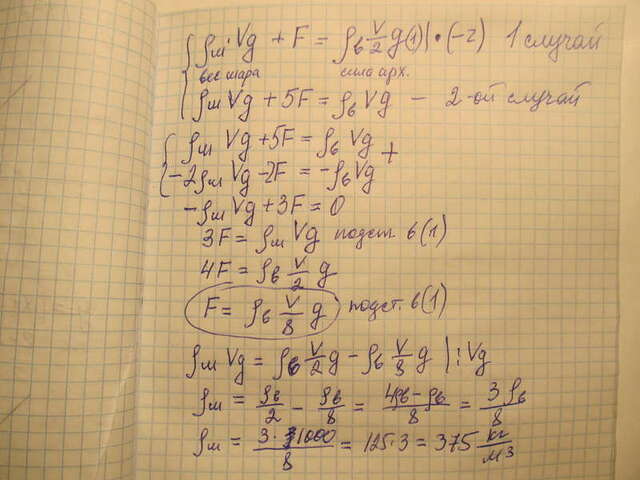 ρш·Vg + F = ρв V/2 g (1) |·(-2) 1 случай
вес шара сила арх.
ρш Vg + 5F = ρв Vg – 2-ой случай
ρш Vg + 5F = ρв Vg +
-2ρш Vg - 2F = -ρв Vg
-ρш Vg + 3F = 0
3F = ρш Vg подст. в (1)
4F = ρв V/2 g
F = ρв V/8 g подст. в (1)
ρш Vg = ρв V/2 g - ρв V/8 g |: Vg
ρш = ρв/2 - ρв/8 = 4ρв-ρв/8 = 3ρв/8
ρш = 3·1000/8 = 125·3 = 375 кг/м³